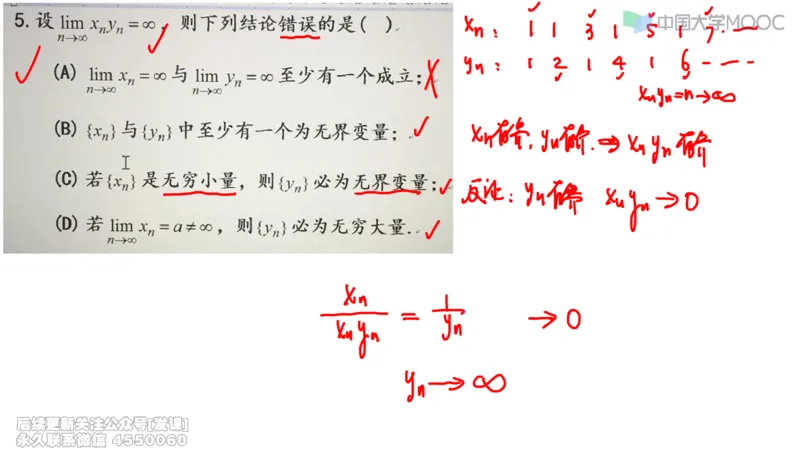 5. 设 lim n→∞ xₙyₙ = ∞, 则下列结论错误的是( ).
(A) lim n→∞ xₙ = ∞ 与 lim n→∞ yₙ = ∞ 至少有一个成立;
(B) {xₙ} 与 {yₙ} 中至少有一个为无界变量;
(C) 若 {xₙ} 是无穷小量, 则 {yₙ} 必为无界变量;
(D) 若 lim n→∞ xₙ = a ≠ ∞, 则 {yₙ} 必为无穷大量.
中国大学MOOC
xₙ: 1 1 3 1 5 1 7 ---
yₙ: 1 2 1 4 1 6 ---
xₙyₙ = n → ∞
xₙ有界, yₙ有界. ⇒ xₙyₙ有界
反证: yₙ有界 xₙyₙ → 0
xₙ / xₙyₙ = 1 / yₙ → 0
yₙ → ∞
后续更新关注公众号[发课]
永久联系微信 4550060